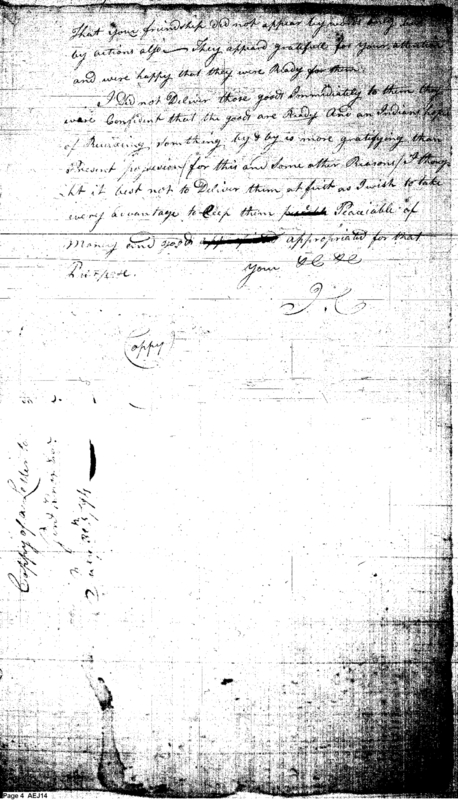 That your friendship did not appear by words only but
by actions also — They appeard gratefull for your attention
and were happy that they were Ready for them.
I Did not Deliver those goods Immediately to them they
were Confident that the goods are Ready And an Indians hope
of Receiving somthing by & by is more gratifying than
Present possession for this and some other Reasons I thoug
ht it best not to Deliver them at first as I wish to take
every advantage to Keep them Peaciable of
Money and goods appropriated for that
Purpose.
Your &C &C
J. C
Coppy
Coppy of a Letter to
Page 4 AEJ14